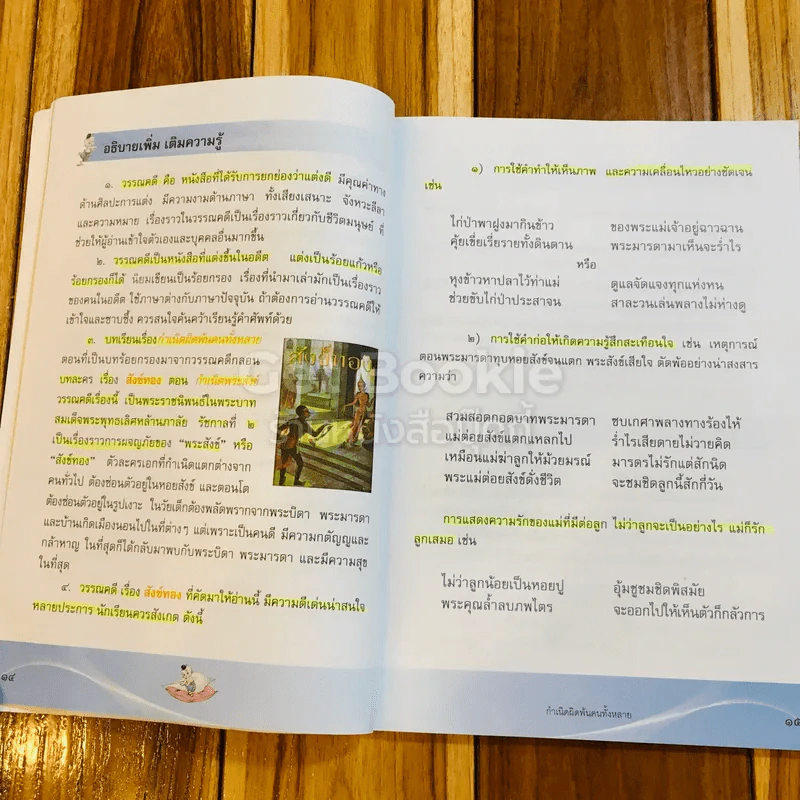 อธิบายเพิ่ม เติมความรู้
๑. วรรณคดี คือ หนังสือที่ได้รับการยกย่องว่าแต่งดี มีคุณค่าทาง
ด้านศิลปะการแต่ง มีความงามด้านภาษา ทั้งเสียงเสนาะ จังหวะลีลา
และความหมาย เรื่องราวในวรรณคดีเป็นเรื่องราวเกี่ยวกับชีวิตมนุษย์ ที่
ช่วยให้ผู้อ่านเข้าใจตัวเองและบุคคลอื่นมากขึ้น
๒. วรรณคดีเป็นหนังสือที่แต่งขึ้นในอดีต แต่งเป็นร้อยแก้วหรือ
ร้อยกรองก็ได้ นิยมเขียนเป็นร้อยกรอง เรื่องที่นำมาเล่ามักเป็นเรื่องราว
ของคนในอดีต ใช้ภาษาต่างกับภาษาปัจจุบัน ถ้าต้องการอ่านวรรณคดีให้
เข้าใจและซาบซึ้ง ควรสนใจค้นคว้าเรียนรู้คำศัพท์ด้วย
๓. บทเรียนเรื่องกำเนิดผิดพ้นคนทั้งหลาย
ตอนที่เป็นบทร้อยกรองมาจากวรรณคดีกลอน
บทละคร เรื่อง สังข์ทอง ตอน กำเนิดพระสังข์
วรรณคดีเรื่องนี้ เป็นพระราชนิพนธ์ในพระบาท
สมเด็จพระพุทธเลิศหล้านภาลัย รัชกาลที่ ๒
เป็นเรื่องราวการผจญภัยของ "พระสังข์" หรือ
"สังข์ทอง" ตัวละครเอกที่กำเนิดแตกต่างจาก
คนทั่วไป ต้องซ่อนตัวอยู่ในหอยสังข์ และตอนโต
ต้องซ่อนตัวอยู่ในรูปเงาะ ในวัยเด็กต้องพลัดพรากจากพระบิดา พระมารดา
และบ้านเกิดเมืองนอนไปในที่ต่างๆ แต่เพราะเป็นคนดี มีความกตัญญูและ
กล้าหาญ ในที่สุดก็ได้กลับมาพบกับพระบิดา พระมารดา และมีความสุข
ในที่สุด
๔. วรรณคดี เรื่อง สังข์ทอง ที่คัดมาให้อ่านนี้ มีความดีเด่นน่าสนใจ
หลายประการ นักเรียนควรสังเกต ดังนี้
สังข์ทอง
๑๔
๑) การใช้คำทำให้เห็นภาพ และความเคลื่อนไหวอย่างชัดเจน
เช่น
ไก่ป่าพาฝูงมากินข้าว ของพระแม่เจ้าอยู่ฉาวฉาน
คุ้ยเขี่ยเรี่ยรายทั้งดินดาน พระมารดามาเห็นจะร่ำไร
หรือ
หุงข้าวหาปลาไว้ท่าแม่ ดูแลจัดแจงทุกแห่งหน
ช่วยขับไก่ป่าประสาจน สาละวนเล่นพลางไม่ห่างดู
๒) การใช้คำก่อให้เกิดความรู้สึกสะเทือนใจ เช่น เหตุการณ์
ตอนพระมารดาทุบหอยสังข์จนแตก พระสังข์เสียใจ ตัดพ้ออย่างน่าสงสาร
ความว่า
สวมสอดกอดบาทพระมารดา ซบเกศาพลางทางร้องไห้
แม่ต่อยสังข์แตกแหลกไป ร่ำไรเสียดายไม่วายคิด
เหมือนแม่ฆ่าลูกให้ม้วยมรณ์ มารดรไม่รักแต่สักนิด
พระแม่ต่อยสังข์ดั่งชีวิต จะชมชิดลูกนี้สักกี่วัน
การแสดงความรักของแม่ที่มีต่อลูก ไม่ว่าลูกจะเป็นอย่างไร แม่ก็รัก
ลูกเสมอ เช่น
ไม่ว่าลูกน้อยเป็นหอยปู อุ้มชูชมชิดพิสมัย
พระคุณล้ำลบภพไตร จะออกไปให้เห็นตัวก็กลัวการ
กำเนิดผิดพ้นคนทั้งหลาย
๑๕
Get Bookie